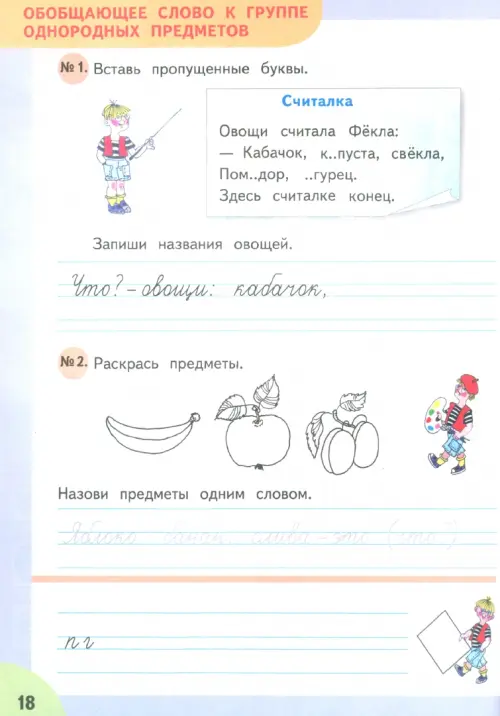 ОБОБЩАЮЩЕЕ СЛОВО К ГРУППЕ
ОДНОРОДНЫХ ПРЕДМЕТОВ
№ 1. Вставь пропущенные буквы.
Считалка
Овощи считала Фёкла:
— Кабачок, к..пуста, свёкла,
Пом..дор, ..гурец.
Здесь считалке конец.
Запиши названия овощей.
Что? – овощи: кабачок,
№ 2. Раскрась предметы.
Назови предметы одним словом.
Яблоко банан слива – это (что?)
п г
18